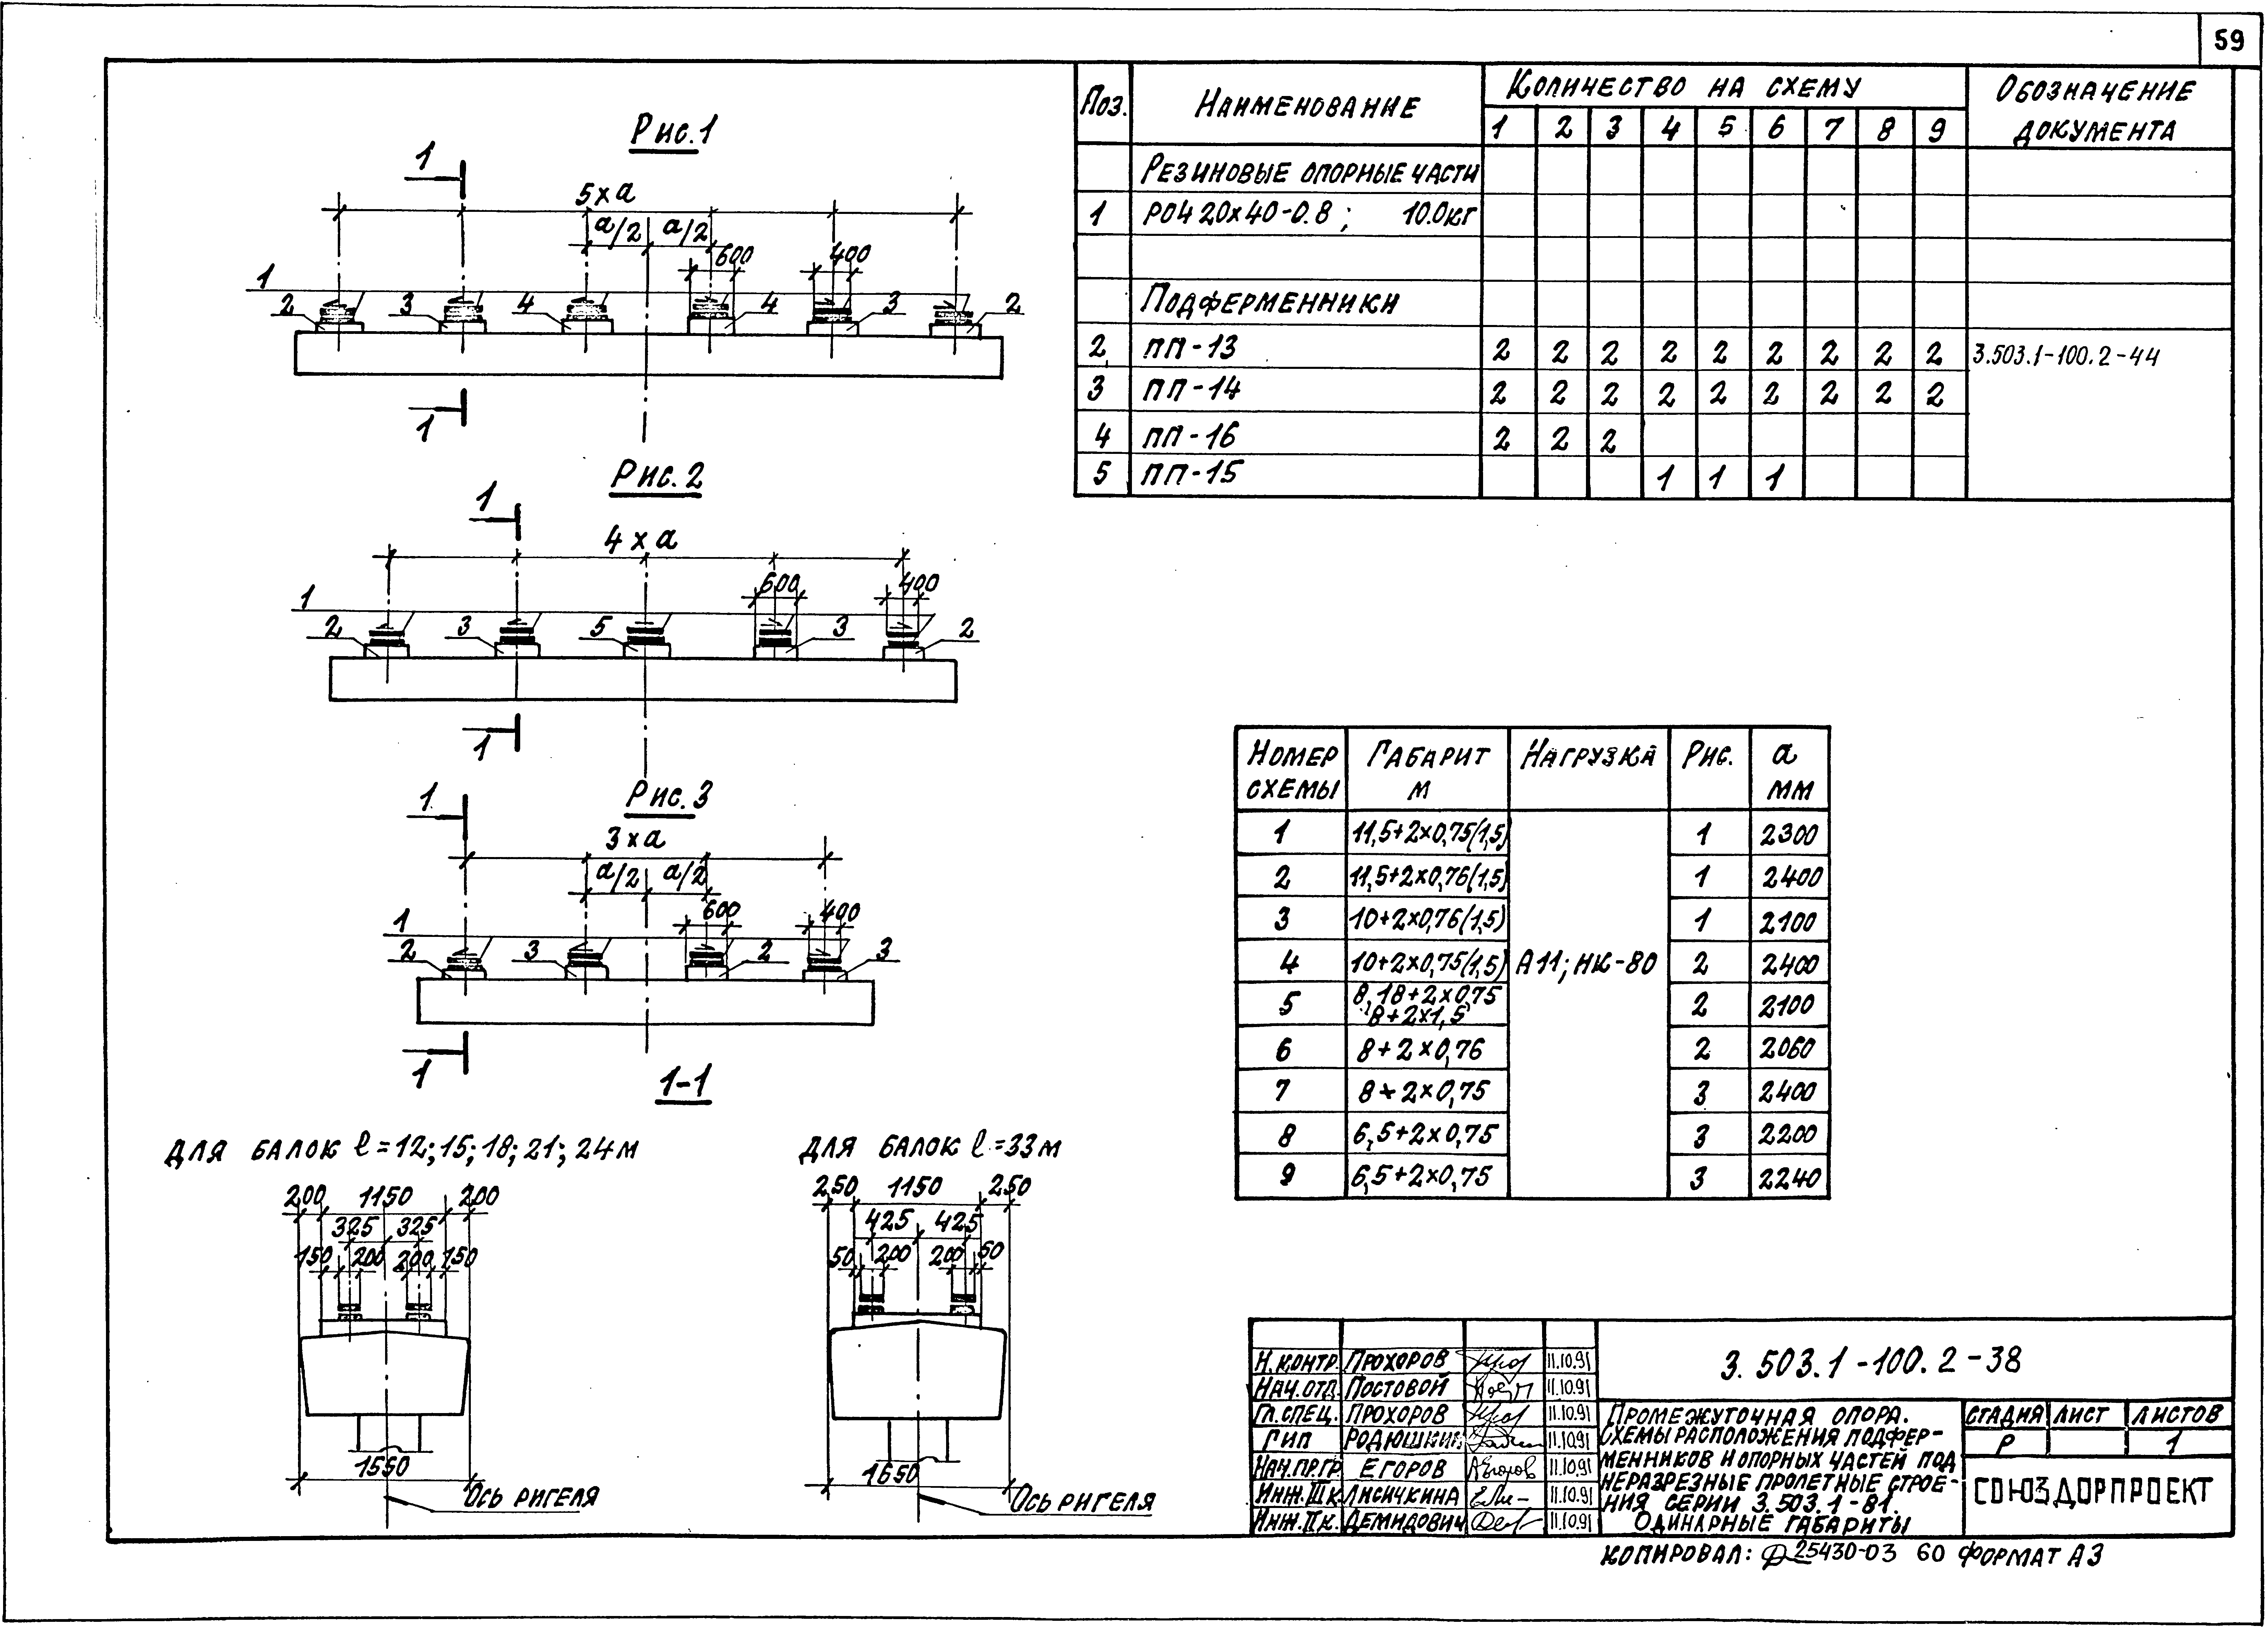 59
Рис.1
1
5ха
а/2 а/2
600
400
1
2 3 4 4 3 2
1
Рис. 2
1
4ха
600
400
1
2 3 5 3 2
1
Рис. 3
1
3ха
а/2 а/2
600
400
1
2 3 2 3
1
1-1
Для балок ℓ=12;15;18;21;24м
200 1150 200
325 325
150 200 200 150
1550
Ось ригеля
Для балок ℓ=33м
250 1150 250
425 425
50 200 200 50
1650
Ось ригеля
Поз. Наименование Количество на схему Обозначение документа
1 2 3 4 5 6 7 8 9
Резиновые опорные части
1 РОЧ 20х40-0.8; 10.0кг
Подферменники
2 ПП-13 2 2 2 2 2 2 2 2 2 3.503.1-100.2-44
3 ПП-14 2 2 2 2 2 2 2 2 2
4 ПП-16 2 2 2
5 ПП-15 1 1 1
Номер схемы Габарит м Нагрузка Рис. а мм
1 11,5+2х0,75(1,5) 1 2300
2 11,5+2х0,76(1,5) 1 2400
3 10+2х0,76(1,5) 1 2100
4 10+2х0,75(1,5) А11; НК-80 2 2400
5 8,18+2х0,75 2 2100
8+2х1,5
6 8+2х0,76 2 2060
7 8+2х0,75 3 2400
8 6,5+2х0,75 3 2200
9 6,5+2х0,75 3 2240
Н.контр. Прохоров 11.10.91
Нач.отд. Постовой 11.10.91
Гл.спец. Прохоров 11.10.91
ГИП Родюшкин 11.10.91
Нач.пр.гр. Егоров 11.10.91
Инж.IIIк. Лисичкина 11.10.91
Инж.IIк. Демидович 11.10.91
3.503.1-100.2-38
Промежуточная опора.
Схемы расположения подфер-
менников и опорных частей под
неразрезные пролетные строе-
ния серии 3.503.1-81.
Одинарные габариты
Стадия Лист Листов
Р 1
СОЮЗДОРПРОЕКТ
Копировал: 25430-03 60 Формат А3